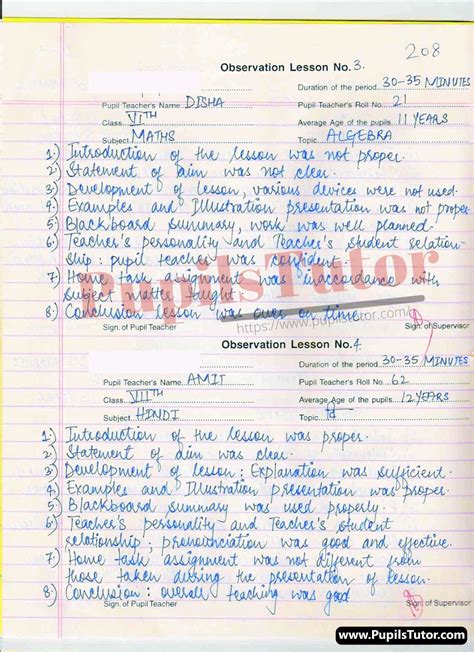 208
Observation Lesson No. 3.
Duration of the period 30-35 MINUTES
Pupil Teacher's Name DISHA
Pupil Teacher's Roll No. 21
Class VITH
Average Age of the pupils 11 YEARS
Subject MATHS
Topic ALGEBRA
1) Introduction of the lesson was not proper.
2) Statement of aim was not clear.
3) Development of lesson, various devices were not used.
4) Examples and Illustration presentation was not proper.
5) Blackboard summary, work was well planned.
6) Teacher's personality and Teacher's student relation-
ship: pupil teacher was confident.
7) Home task assignment was inaccordance with
subject matter taught.
8) Conclusion lesson was over on time
PupilsTutor
https://www.pupilstutor.com/
Sign. of Pupil Teacher
Sign. of Supervisor
Observation Lesson No. 4.
Duration of the period 30-35 MINUTES
Pupil Teacher's Name AMIT
Pupil Teacher's Roll No. 62
Class VIITH
Average Age of the pupils 12 YEARS
Subject HINDI
Topic
1) Introduction of the lesson was proper.
2) Statement of aim was clear.
3) Development of lesson: Explanation was sufficient.
4) Examples and Illustration presentation was proper.
5) Blackboard summary was used properly.
6) Teacher's personality and Teacher's student
relationship; pronounciation was good and effective.
7) Home task assignment was not different from
those taken during the presentation of lesson.
8) Conclusion: overall teaching was good
Sign. of Pupil Teacher
Sign. of Supervisor
www.PupilsTutor.com